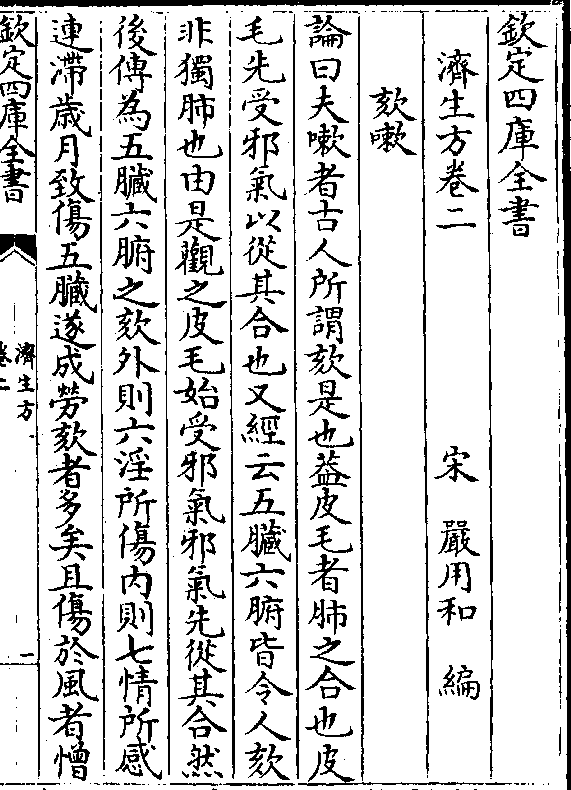 欽定四庫全書
濟生方卷二
宋 嚴用和 編
欬嗽
論曰夫嗽者古人所謂欬是也葢皮毛者肺之合也皮
毛先受邪氣以從其合也又經云五臟六腑皆令人欬
非獨肺也由是觀之皮毛始受邪氣邪氣先從其合然
後傳為五臟六腑之欬外則六淫所傷内則七情所感
連滯歲月致傷五臟遂成勞欬者多矣且傷於風者憎
欽定四庫全書
濟生方
卷二
一